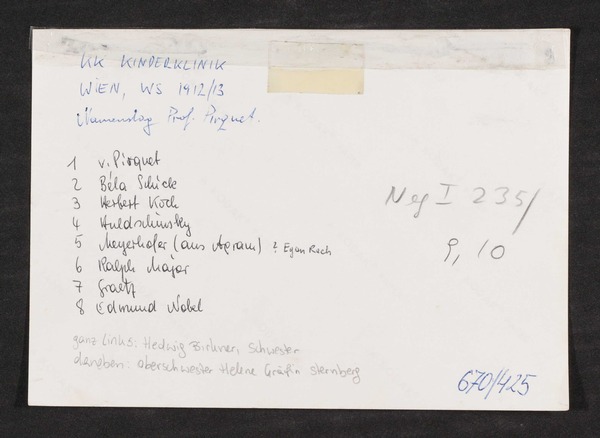 KK KINDERKLINIK
WIEN, WS 1912/13
Namenstag Prof. Pirquet.
1 v. Pirquet
2 Béla Schick
3 Herbert Koch
4 Huldschinsky
5 Meyerhofer (aus Agram) ? Egon Rach
6 Ralph Major
7 Graetz
8 Edmund Nobel
Neg I 235/
9, 10
ganz links: Hedwig Birkner, Schwester
daneben: Oberschwester Helene Gräfin Sternberg
670/425